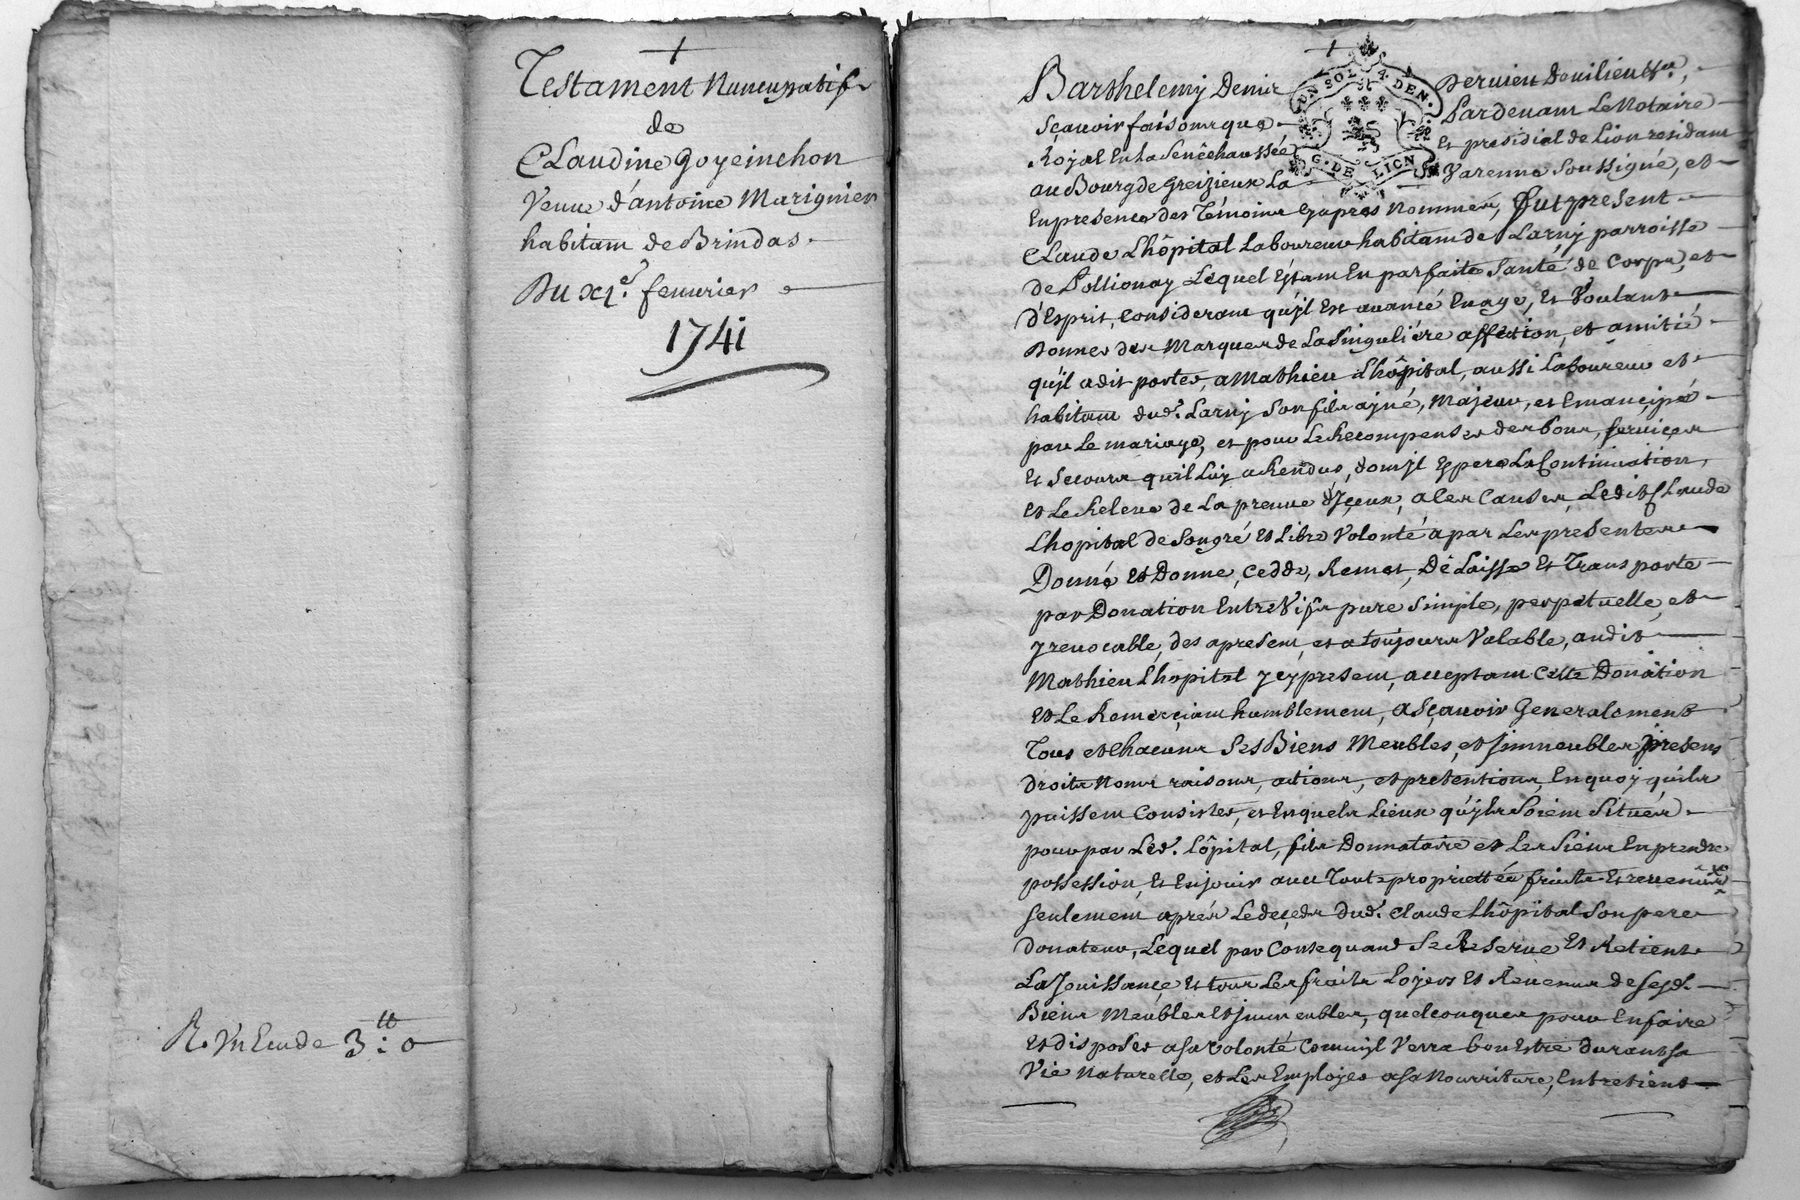 Testament Nuncupatif
de
Claudine Goyeinchon
Veuve d'antoine Marignier
habitant de Brindas.
Du xj.e feuurier
1741
R. Vn Ecu de 3.tt : 0
UN SOL 4 DEN.
G. DE LION
Barthelemy Denis Deruieu Deuilieu
sçauoir faisons que Pardeuant Le Notaire
Royal En La Senêchaussée Et presidial de Lion residant
au Bourg de Greizieux La Varenne Soussigné, et
En presence des Témoins Cyapres Nommés, Fut present
Claude Lhôpital Laboureur habitant de Larny parroisse
de Pollionay Lequel Estant En parfaite Santé de Corps, et
d'Esprit, Considerant qu'jl Est auancé En age, Et Voulant
Donner des Marques de La Singuliére affection, et amitié
qu'jl adit porter, a Mathieu Lhôpital, aussi Laboureur et
habitant dud.t Larny Son fils ajné, Majeur, et Emancipé
par Le mariage, et pour Le Recompenser des bons, seruices
Et Secours qu'il Luy a Rendus, dont jl Espere La Continuation,
et Le Releue de La preuue d'Jçeux, a Ces Causes Ledit Claude
Lhopital de Son gré Et Libre Volonté a par Les presentes
Donné Et Donne, Cedde, Remet, Délaisse Et Transporte
par Donation Entre Vifs pure Simple, perpetuelle, et
jrreuocable, des apresent, et a toujours Valable, audit
Mathieu Lhopital jcy present, acceptant Cette Donation
Et Le Remerçiant humblement, a Sçauoir Generalement
Tous et Chacuns Ses Biens Meubles, et jmmeubles presens
droits Noms raisons, actions, et pretentions, En quoy qu'ils
puissent Consister, et En quels Lieux qu'jls Soient Situés
pour par Led.t Lôpital, fils Donnataire et Les Siens En prendre
possession, Et En jouir auec Toute proprietté fruits Et reuenus
seulement aprés Le deçeds dud.t Claude Lhôpital Son pere
donateur, Lequel par Consequand Se Reserue Et Retient
La Jouissançe Et tous Les fruits Loyers Et Reuenus de Sesd.
Biens Meubles Et jmmeubles, quelconques pour En faire
Et disposer a Sa Volonté Comm'jl Verra bon Estre durant Sa
Vie Naturelle, et Les Employer a Sa Nourriture, Entretient